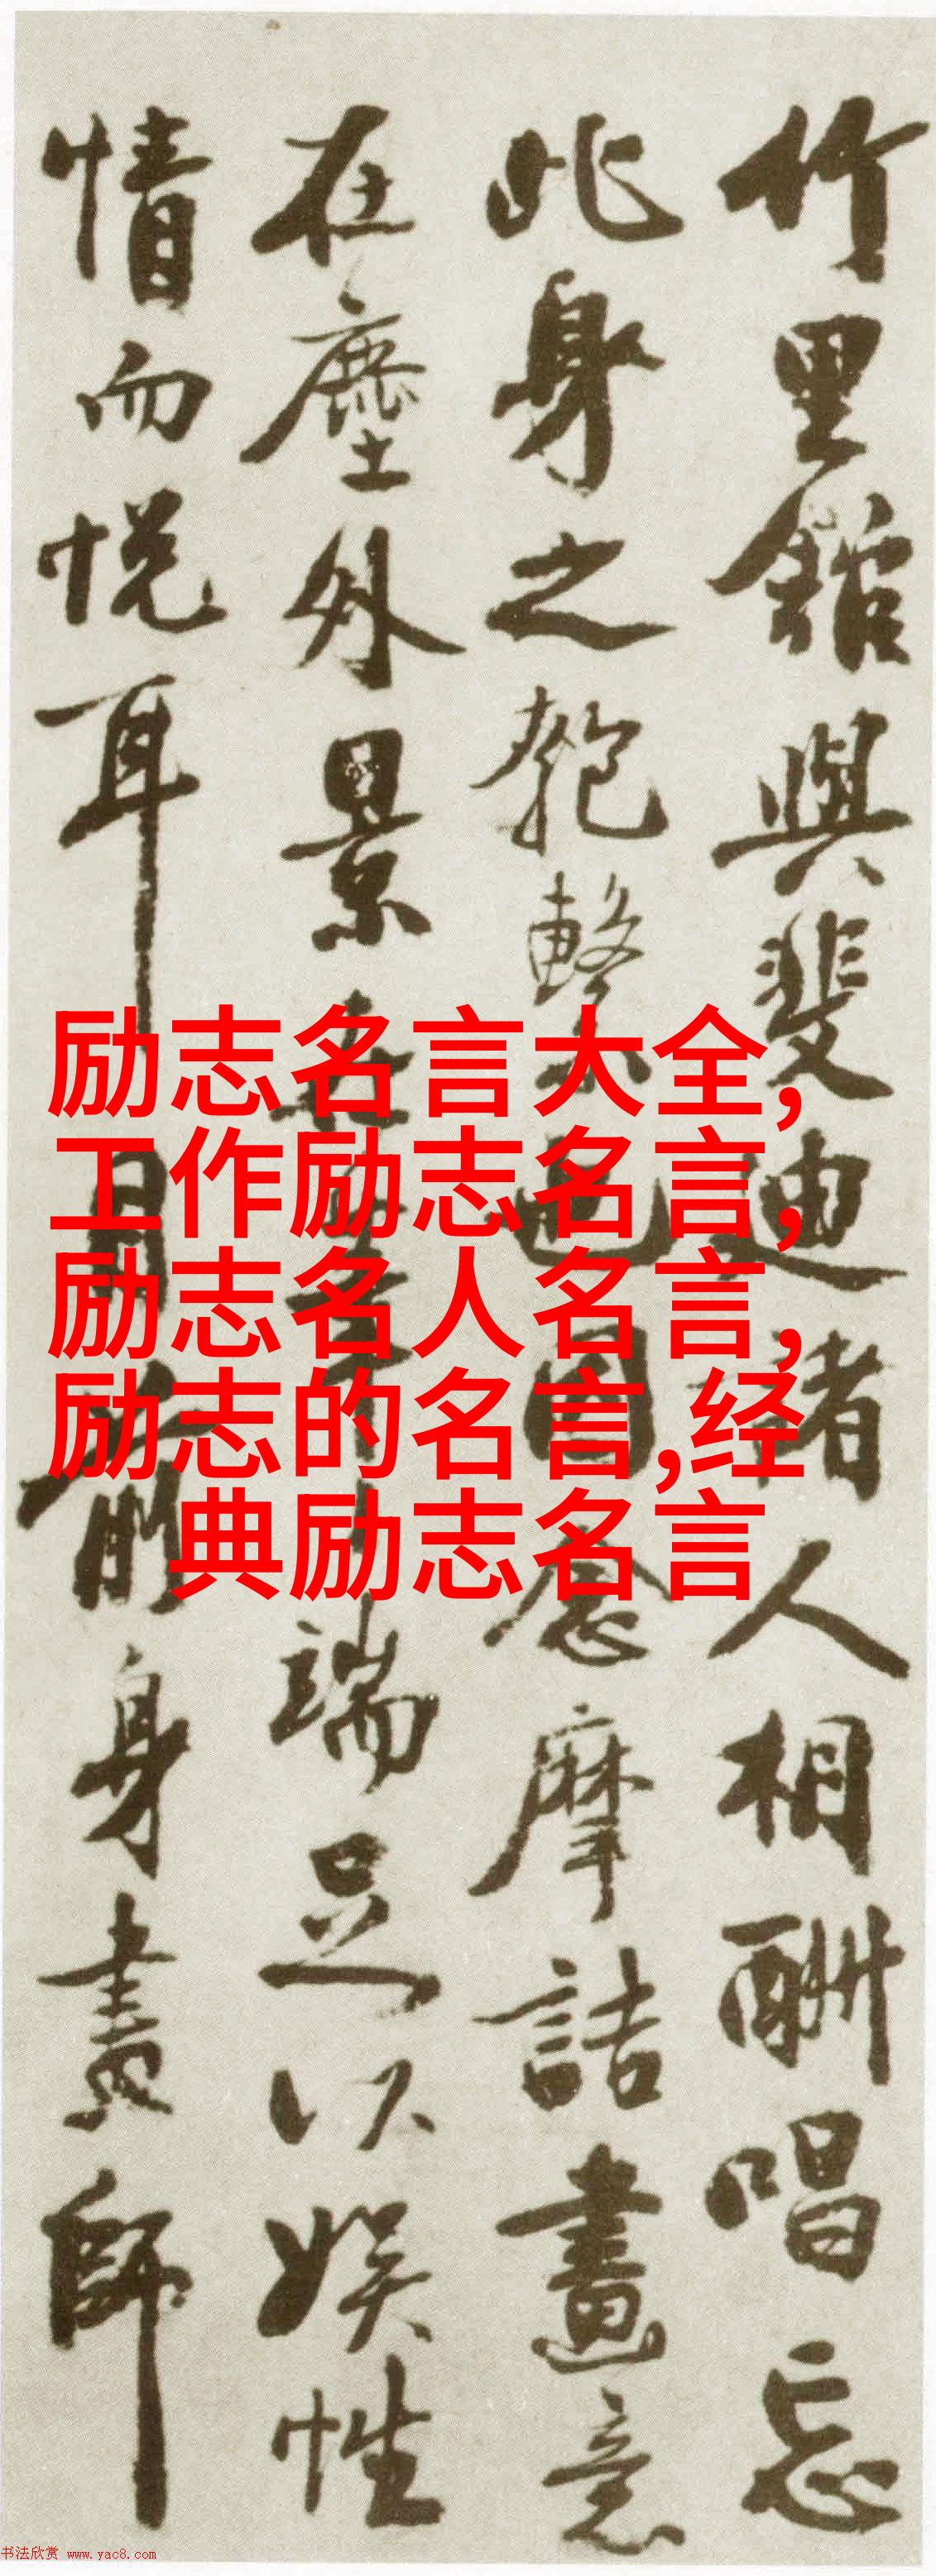 竹里館與斐迪諸人相酬唱忘
此身之匏繫也因念摩詰畫意
在塵外景
端足以娛性
情而悅耳目前身畫師
励志名言大全,
工作励志名言,
励志名人名言,
励志的名言,经
典励志名言
书法欣赏 www.yac8.com